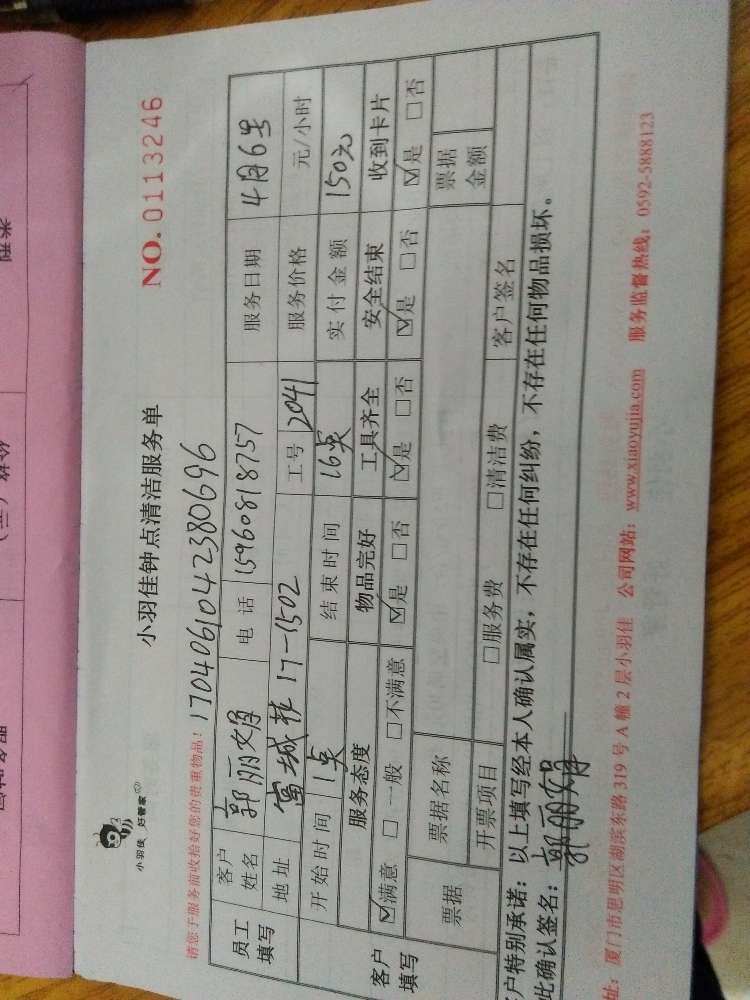 小羽佳 好管家
小羽佳钟点清洁服务单
NO. 0113246
请您于服务前收拾好您的贵重物品！ 1704061042380696
员工填写
客户姓名 郭丽娟 电话 15960818757 服务日期 4月6号
地址 富城苑 17-1502 工号 2041 服务价格 元/小时
开始时间 1点 结束时间 16点 实付金额 150元
客户填写
服务态度 物品完好 工具齐全 安全结束 收到卡片
☑满意 □一般 □不满意 ☑是 □否 ☑是 □否 ☑是 □否 ☑是 □否
票据 票据名称 票据金额
开票项目 □服务费 □清洁费 客户签名
户特别承诺：以上填写经本人确认属实，不存在任何纠纷，不存在任何物品损坏。
此确认签名：郭丽娟
址：厦门市思明区湖滨东路 319 号 A 幢 2 层小羽佳 公司网站：www.xiaoyujia.com 服务监督热线：0592-5888123